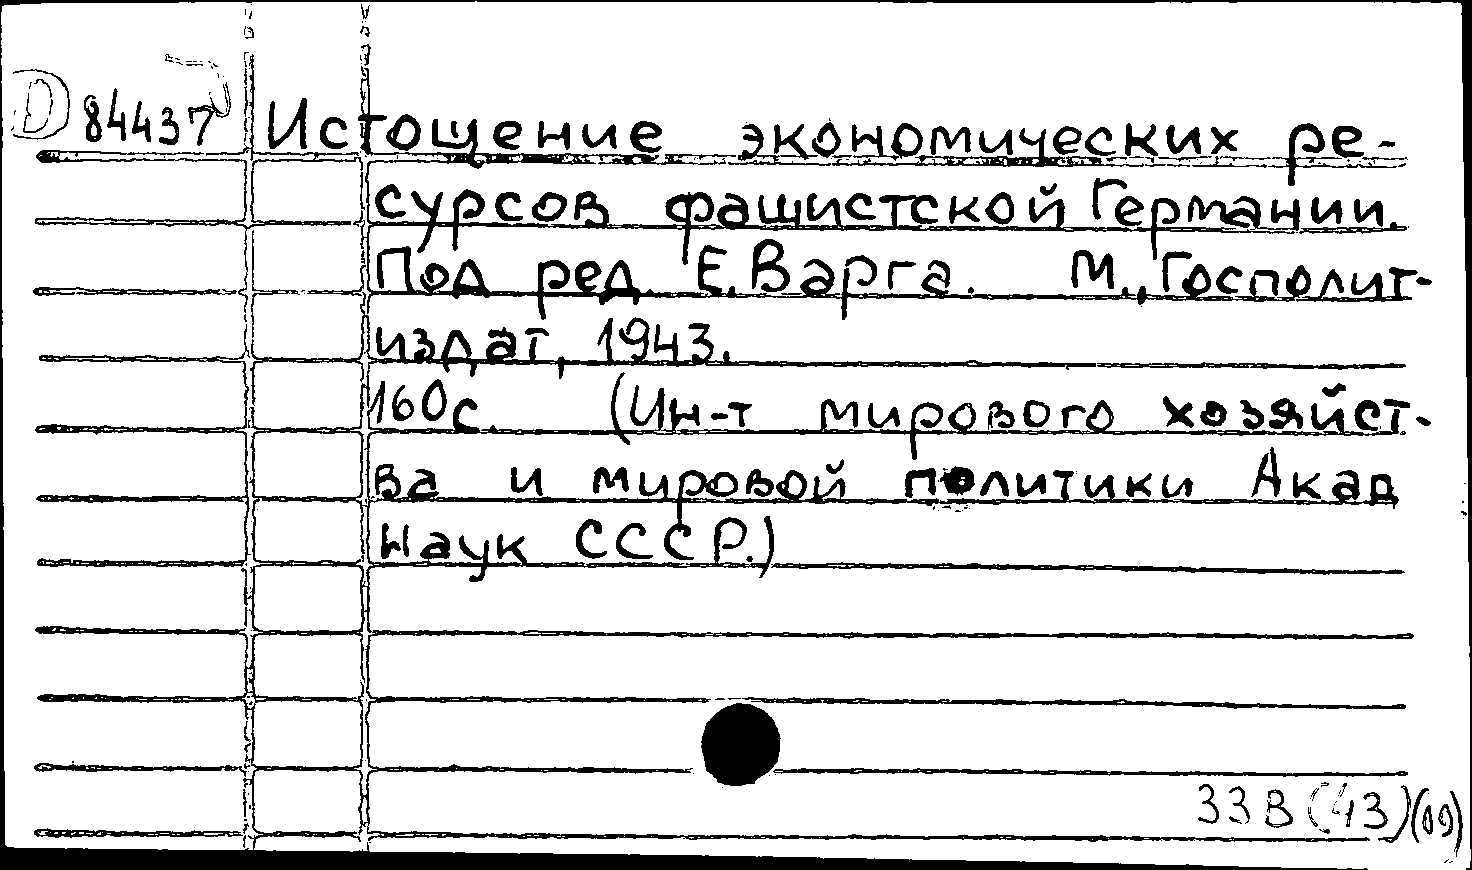 D 84437 Истощение экономических ре-
сурсов фашистской Германии.
Под ред. Е. Варга. М., Госполит-
издат, 1943.
160с. (Ин-т мирового хозяйст-
ва и мировой политики Акад
Наук СССР.)
33В(43)